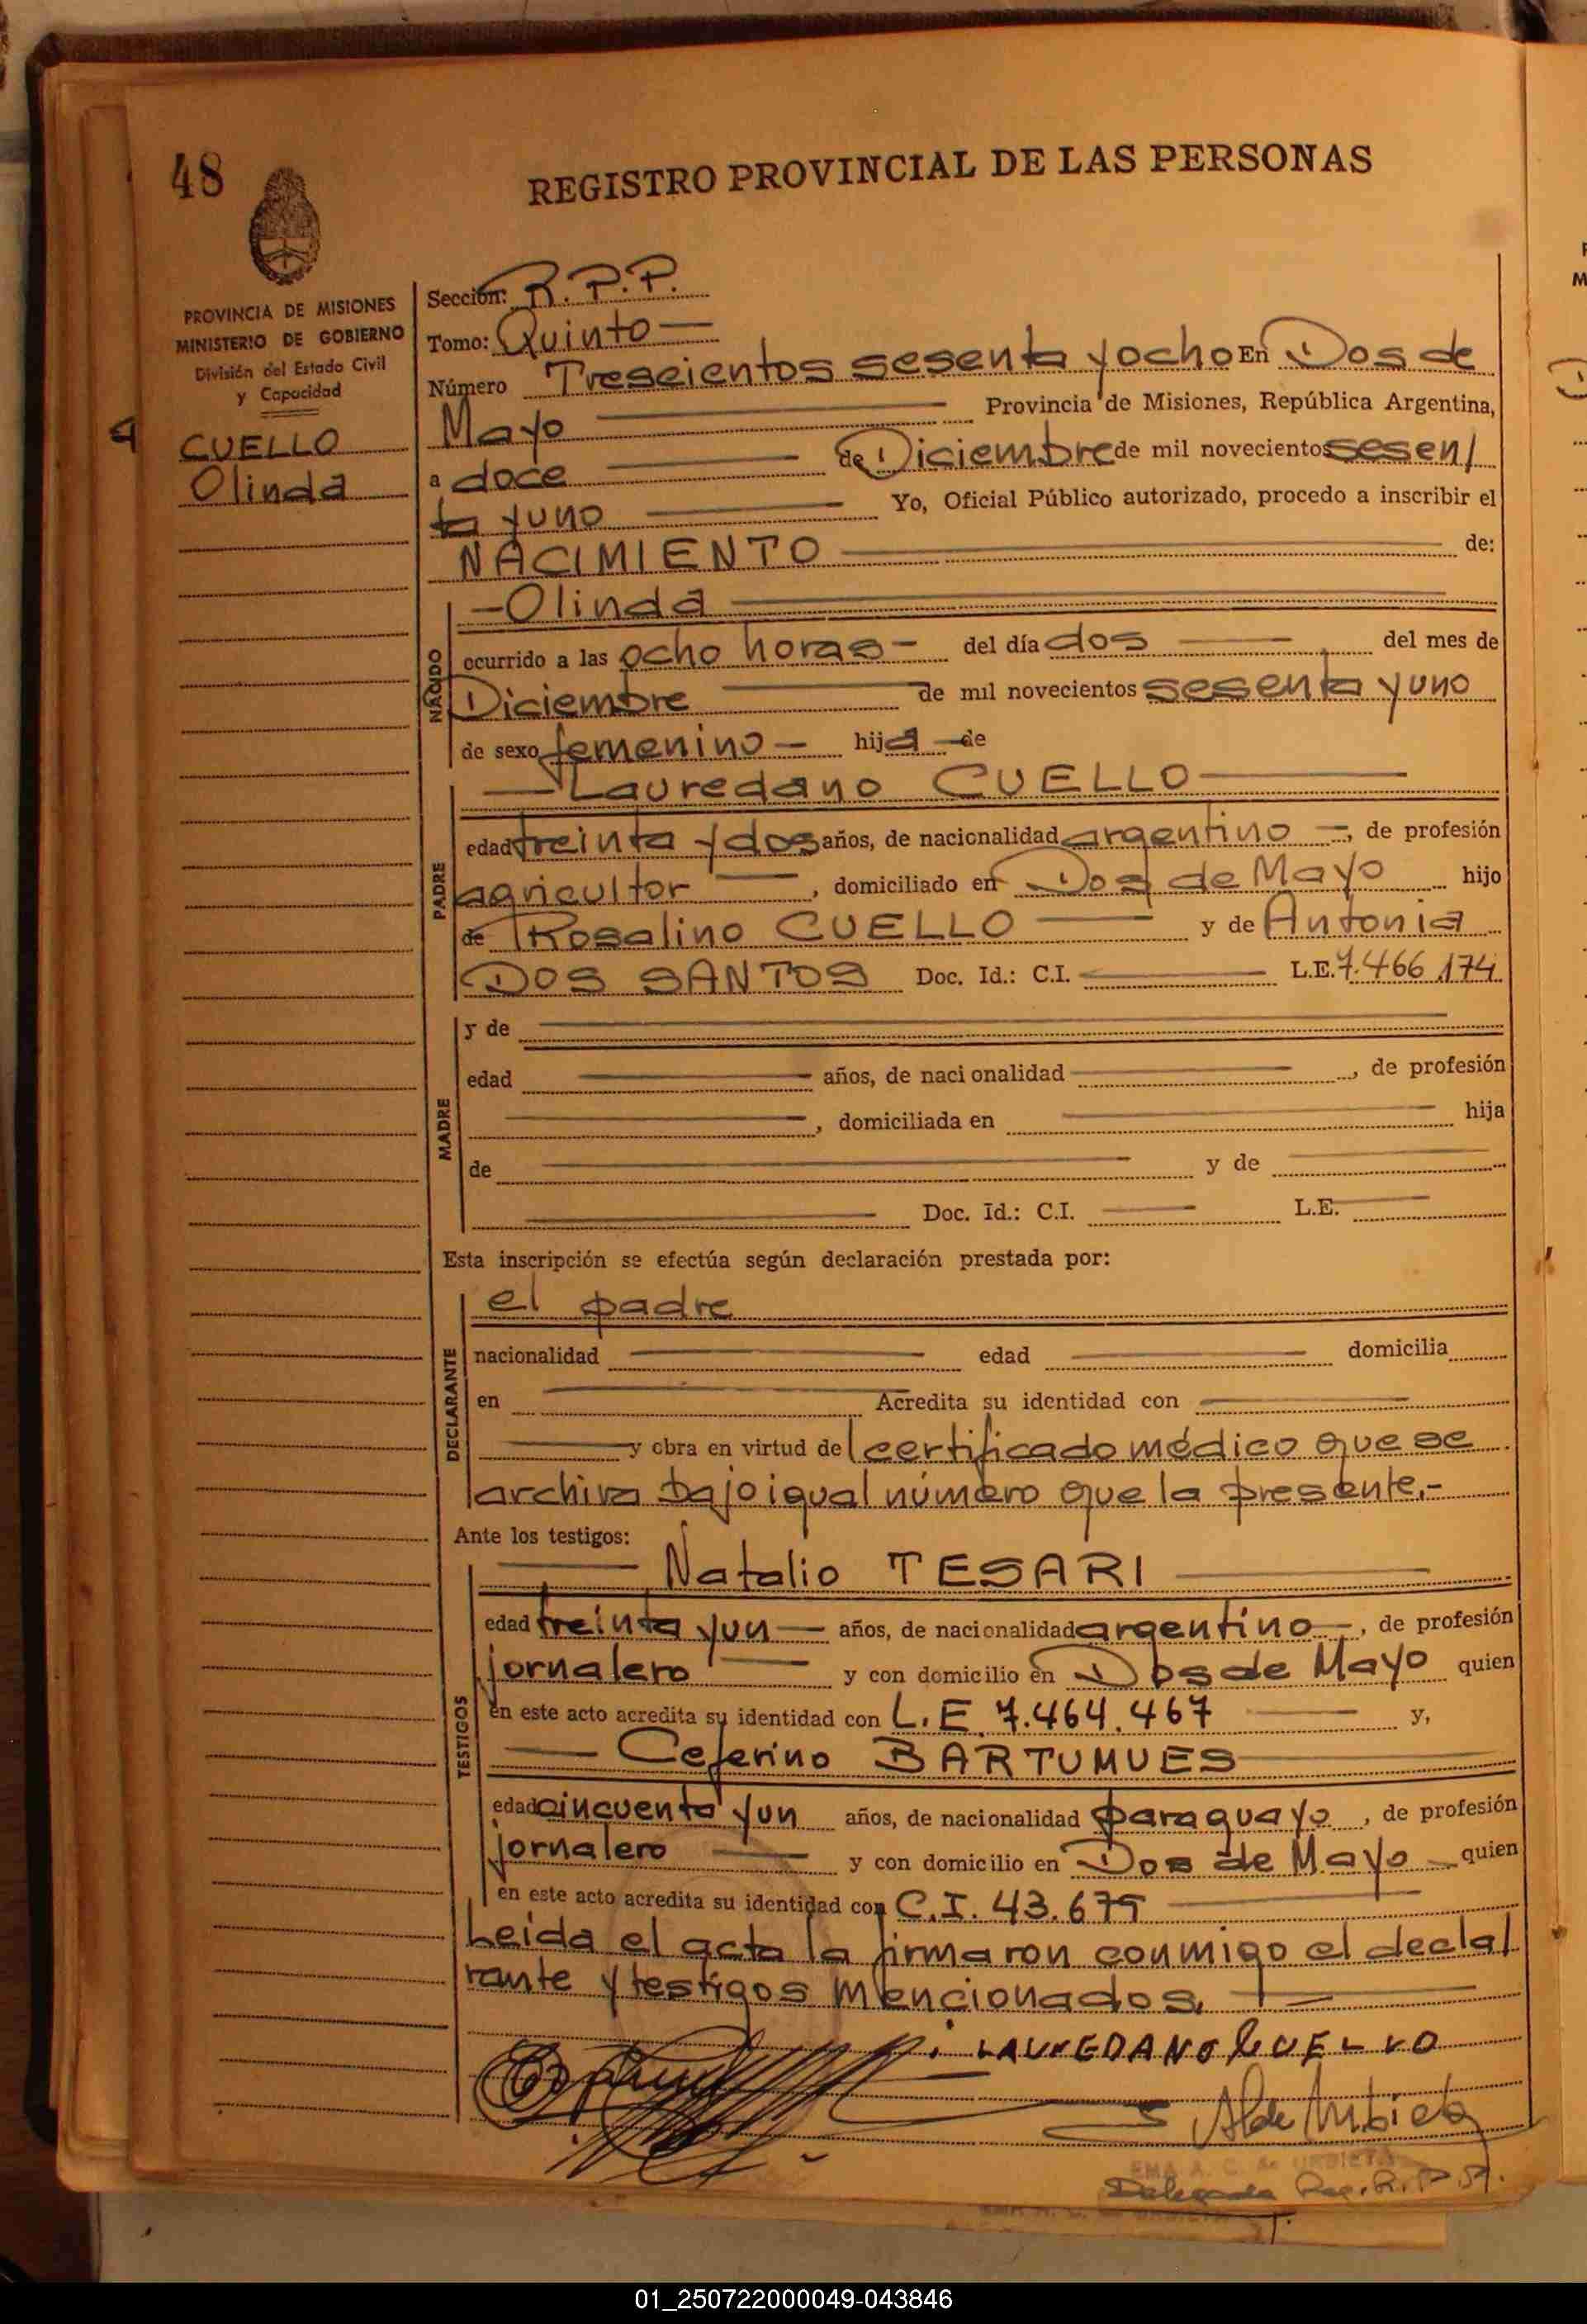 48
REGISTRO PROVINCIAL DE LAS PERSONAS
PROVINCIA DE MISIONES
MINISTERIO DE GOBIERNO
División del Estado Civil
y Capacidad
CUELLO
Olinda
Sección: R.P.P.
Tomo: Quinto
Número Trescientos sesenta y ocho En Dos de
Mayo Provincia de Misiones, República Argentina,
a doce de Diciembre de mil novecientos sesen/
ta y uno Yo, Oficial Público autorizado, procedo a inscribir el
NACIMIENTO de:
NACIDO
-Olinda
ocurrido a las ocho horas- del día dos del mes de
Diciembre de mil novecientos sesenta y uno
de sexo femenino - hija de
PADRE
Lauredano CUELLO
edad treinta y dos años, de nacionalidad argentino -, de profesión
agricultor, domiciliado en Dos de Mayo hijo
de Rosalino CUELLO y de Antonia
DOS SANTOS Doc. Id.: C.I. L.E. 7.466.174
MADRE
y de
edad años, de nacionalidad, de profesión
, domiciliada en hija
de y de
Doc. Id.: C.I. L.E.
Esta inscripción se efectúa según declaración prestada por:
DECLARANTE
el padre
nacionalidad edad domicilia
en Acredita su identidad con
y obra en virtud de certificado médico que se
archiva bajo igual número que la presente.-
Ante los testigos:
TESTIGOS
Natalio TESARI
edad treinta y un años, de nacionalidad argentino, de profesión
jornalero y con domicilio en Dos de Mayo quien
en este acto acredita su identidad con L.E 7.464.467 y,
Ceferino BARTUMUES
edad cincuenta y un años, de nacionalidad paraguayo, de profesión
jornalero y con domicilio en Dos de Mayo quien
en este acto acredita su identidad con C.I. 43.679
Leida el acta la firmaron conmigo el decla/
rante y testigos mencionados.
LAUREDANO CUELLO
01_250722000049-043846